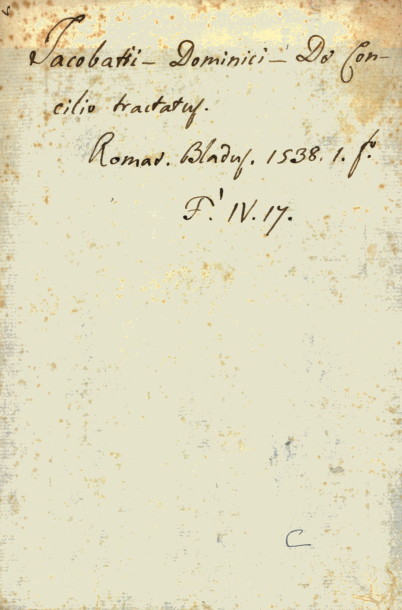 Jacobatii – Dominici – De Con-
cilio tractatus.
Romae. Bladus. 1538. 1. fo.
F.' IV. 17.
C